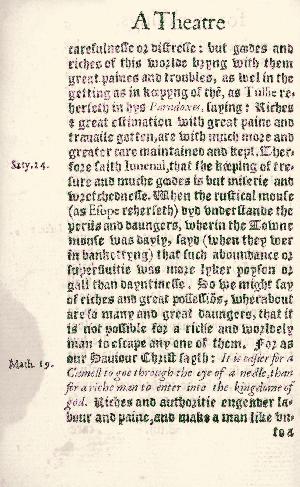 A Theatre
carefulnesse or distresse : but goodes and
riches of this worlde bryng with them
great paines and troubles, as wel in the
getting as in kepyng of thē, as Tullie re-
herseth in hys Paradoxes, saying : Riches
& great estimation with great paine and
travaile gotten, are with much more and
greater care maintained and kept. Ther-
Saty, 14. fore saith Iuuenal, that the keping of tre-
sure and muche goodes is but miserie and
wretchednesse. When the rustical mouse
(as Esope reherseth) dyd vnderstande the
perils and daungers, wherin the Towne
mouse was dayly, sayd (when they wer
in bankettyng) that such aboundance or
superfluitie was more lyker poyson or
gall than dayntinesse. So we might say
of riches and great possessiōs, wherabout
are so many and great daungers, that it
is not possible for a riche and worldely
man to escape any one of them. For as
Math. 19. our Saviour Christ sayth : It is easier for a
Camell to goe through the eye of a nedle, than
for a riche man to enter into the kingdome of
god. Riches and authoritie engender la-
bour and paine, and make a man like vn-
to a